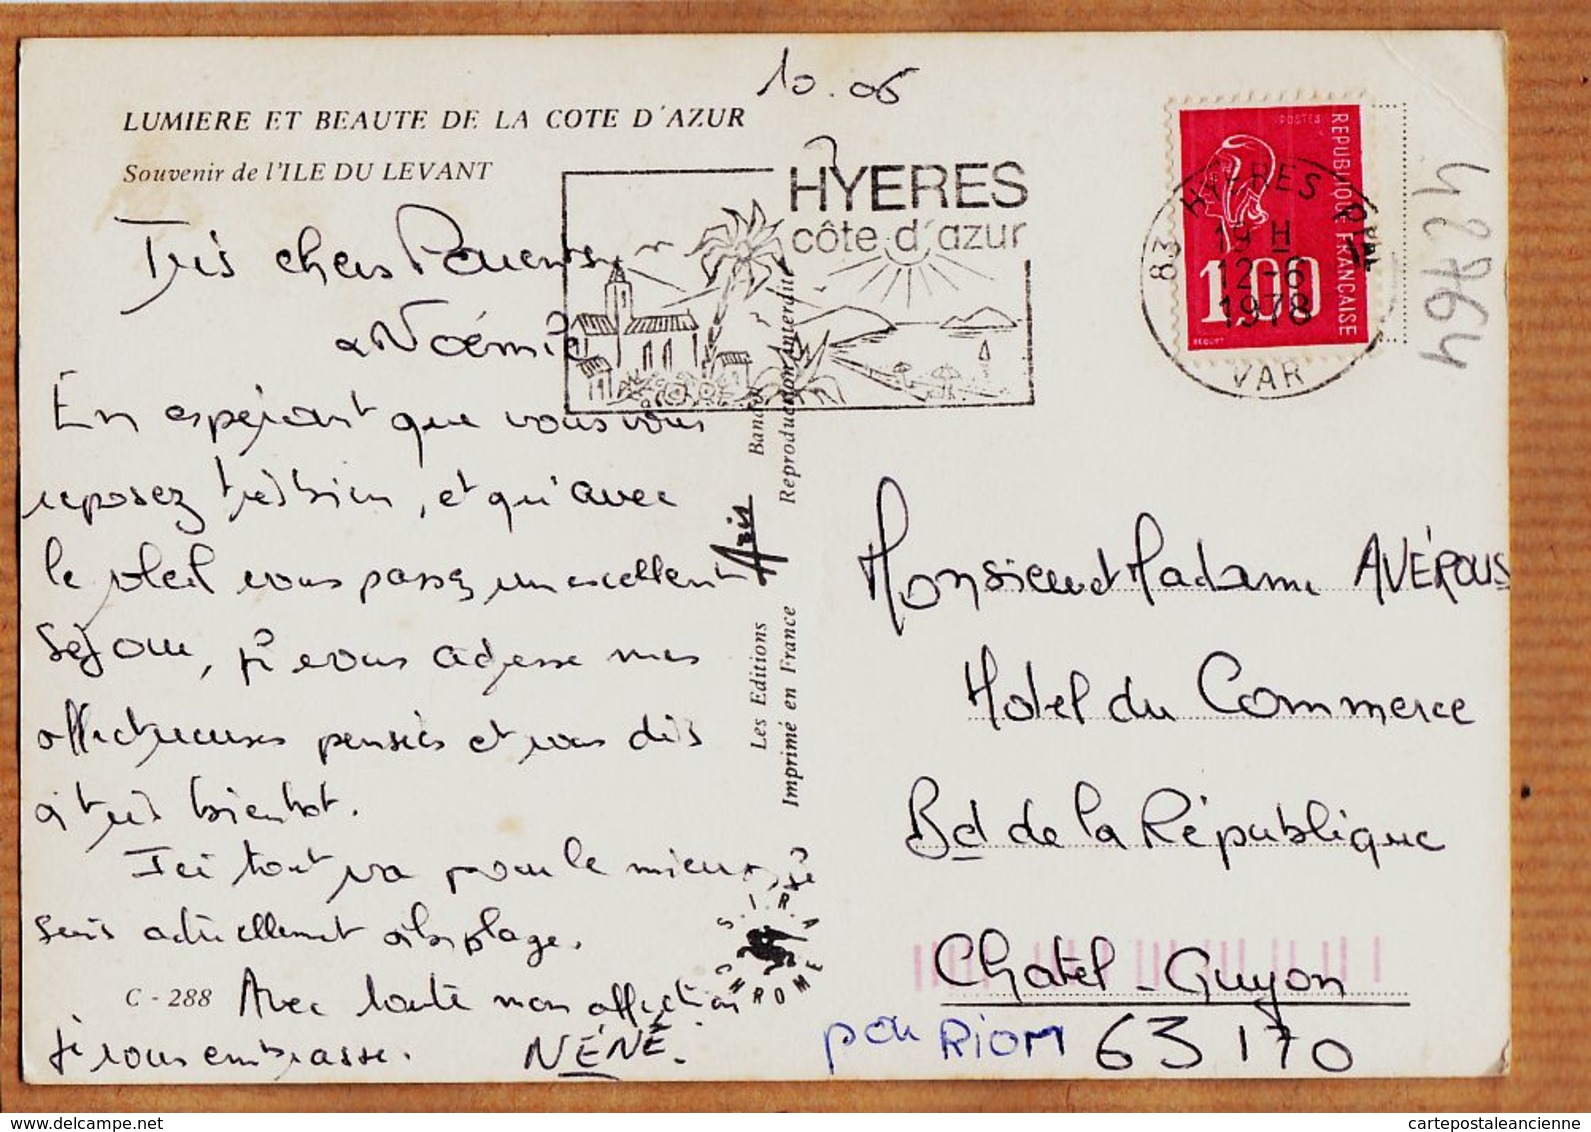 10.06
LUMIERE ET BEAUTE DE LA COTE D'AZUR
Souvenir de l'ILE DU LEVANT
Très chers Parents
& Noémie
En espérant que vous vous
reposez très bien, et qu'avec
le soleil vous passez un excellent
séjour, je vous adresse mes
affectueuses pensées et vous dis
à très bientôt.
Ici tout va pour le mieux, je
suis actuellement à la plage.
C - 288
Avec toute mon affection
je vous embrasse.
NÉNÉ.
HYERES
côte d'azur
83 HYERES PPAL
19 H
12-6
1978
VAR
POSTES
REPUBLIQUE FRANCAISE
1,00
BEQUET
42764
Les Editions Azis Bandol
Imprimé en France Reproduction interdite
S.I.R.A.
CHROME
Monsieur et Madame AVÉROUS
Hotel du Commerce
Bd de la République
Chatel-Guyon
par RIOM 63170
cartepostaleancienne